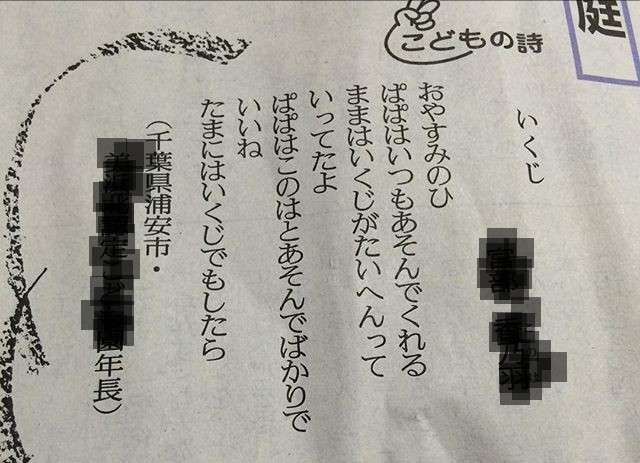 庭
こどもの詩
いくじ
おやすみのひ
ぱぱはいつもあそんでくれる
ままはいくじがたいへんって
いってたよ
ぱぱはこのはとあそんでばかりで
いいね
たまにはいくじでもしたら
(千葉県浦安市・
年長)